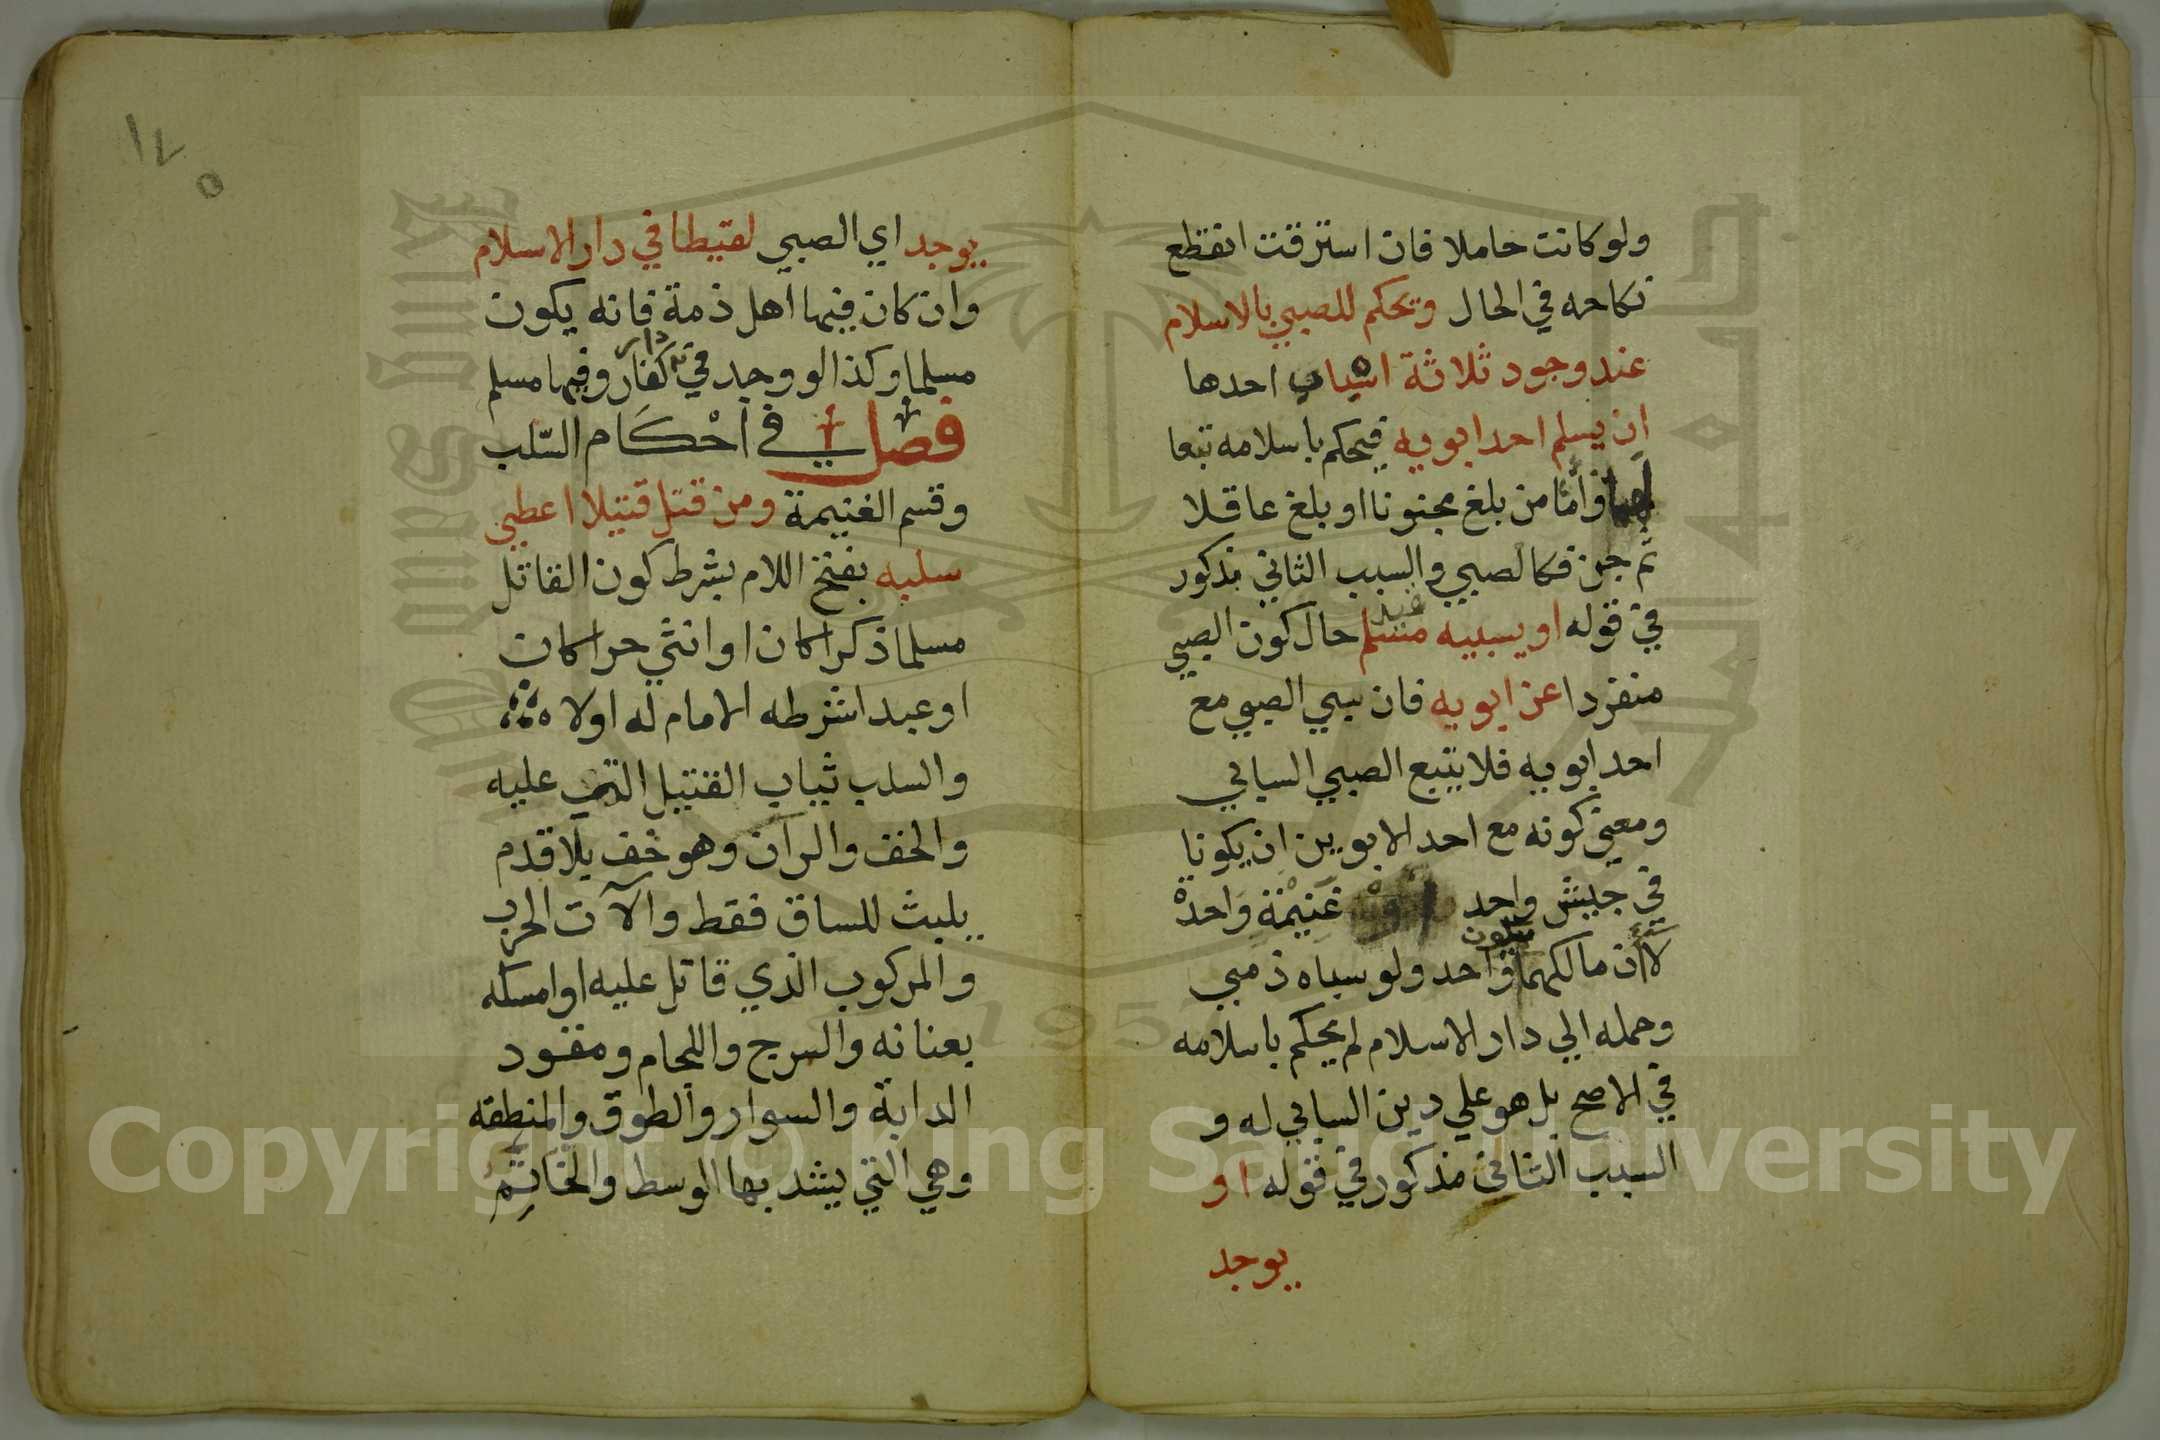 ولو كانت حاملا فان استرقت انقطع
نكاحه في الحال ويحكم للصبي بالاسلام
عند وجود ثلاثة اسباب احدها
ان يسلم احد ابويه فيحكم باسلامه تبعا
لهما وأما من بلغ مجنونا او بلغ عاقلا
ثم جن فكالصبي والسبب الثاني مذكور
في قوله او يسبيه مسلم حال كون الصبي
منفردا عن ابويه فان سبي الصبي مع
احد ابويه فلا يتبع الصبي السابي
ومعنى كونه مع احد الابوين ان يكونا
في جيش واحد وغنيمة واحدة
لا أن مالكهما يكون واحد ولو سباه ذمي
وحمله الي دار الاسلام لم يحكم باسلامه
في الاصح بل هو علي دين السابي له و
السبب الثاني مذكور في قوله او
يوجد
١٧٥
يوجد اي الصبي لقيطا في دار الاسلام
وان كان فيها اهل ذمة فانه يكون
مسلما وكذا لو وجد في دار كفار وفيها مسلم
فصل في احكام السلب
وقسم الغنيمة ومن قتل قتيلا اعطي
سلبه بفتح اللام بشرط كون القاتل
مسلما ذكرا كان او انثي حرا كان
او عبدا شرطه الامام له اولا
والسلب ثياب القتيل التي عليه
والخف والران وهو خف بلا قدم
يلبث للساق فقط والآت الحرب
والمركوب الذي قاتل عليه او امسكه
بعنانه والسرج واللجام ومقود
الدابة والسوار والطوق والمنطقه
وهي التي يشد بها الوسط والخاتم
Copyright © King Saud University
1957